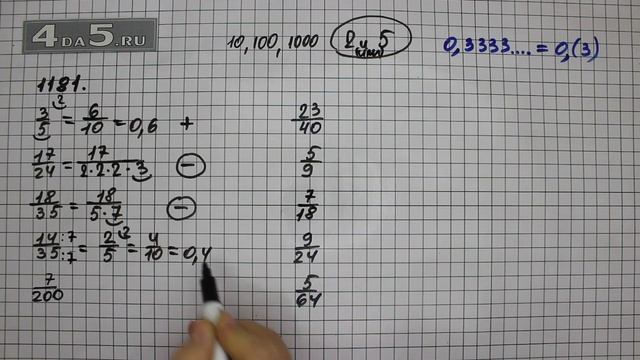 4DA5.RU
10, 100, 1000 2 и 5 (или) 0,3333.... = 0,(3)
1181.
3/5 ² = 6/10 = 0,6 +
17/24 = 17/2·2·2·3 −
18/35 = 18/5·7 −
14:7/35:7 = 2/5 ² = 4/10 = 0,4
7/200
23/40
5/9
7/18
9/24
5/64